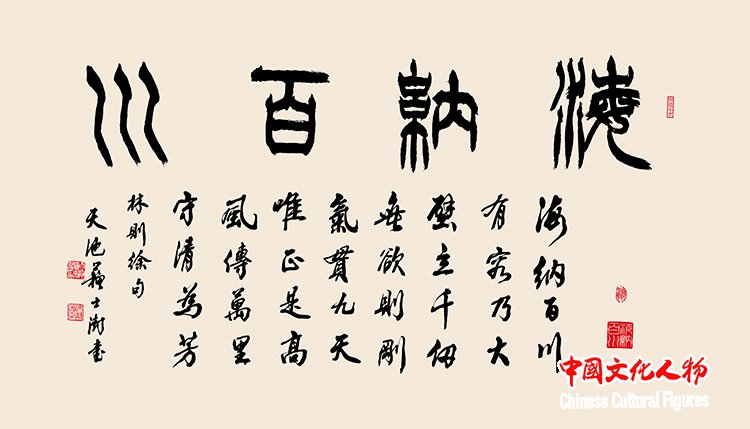 海納百川
海納百川
有容乃大
壁立千仞
無欲則剛
氣貫九天
唯正是高
風傳萬里
守清為芳
林則徐句
天池蘇士澍書
中國文化人物
Chinese Cultural Figures